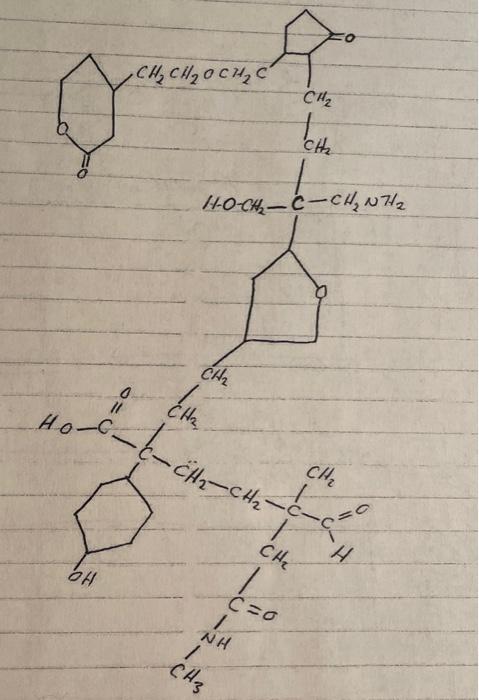 =O
CH2CH2OCH2C
CH2
CH2
O
O
H-O-CH2-C-CH2NH2
O
CH2
O
CH2
HO-C
C
CH2-CH2
CH2
C-C=O
H
CH2
OH
C=O
NH
CH3